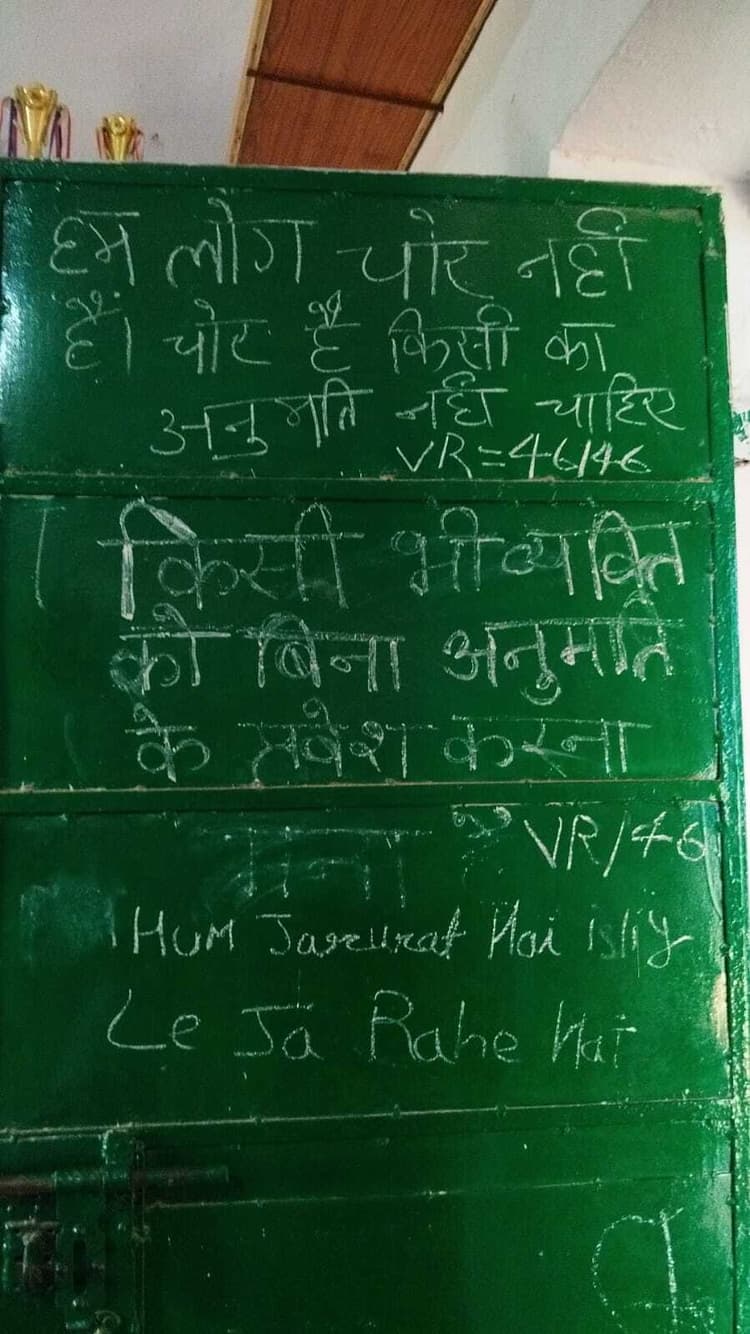 हम लोग चोर नहीं
हैं। चोर है किसी का
अनुमति नहीं चाहिए
VR=46/46
किसी भी व्यक्ति
को बिना अनुमति
के प्रवेश करना
मना है VR/46
HUM Jarurat Hai isliy
Le Ja Rahe Hai